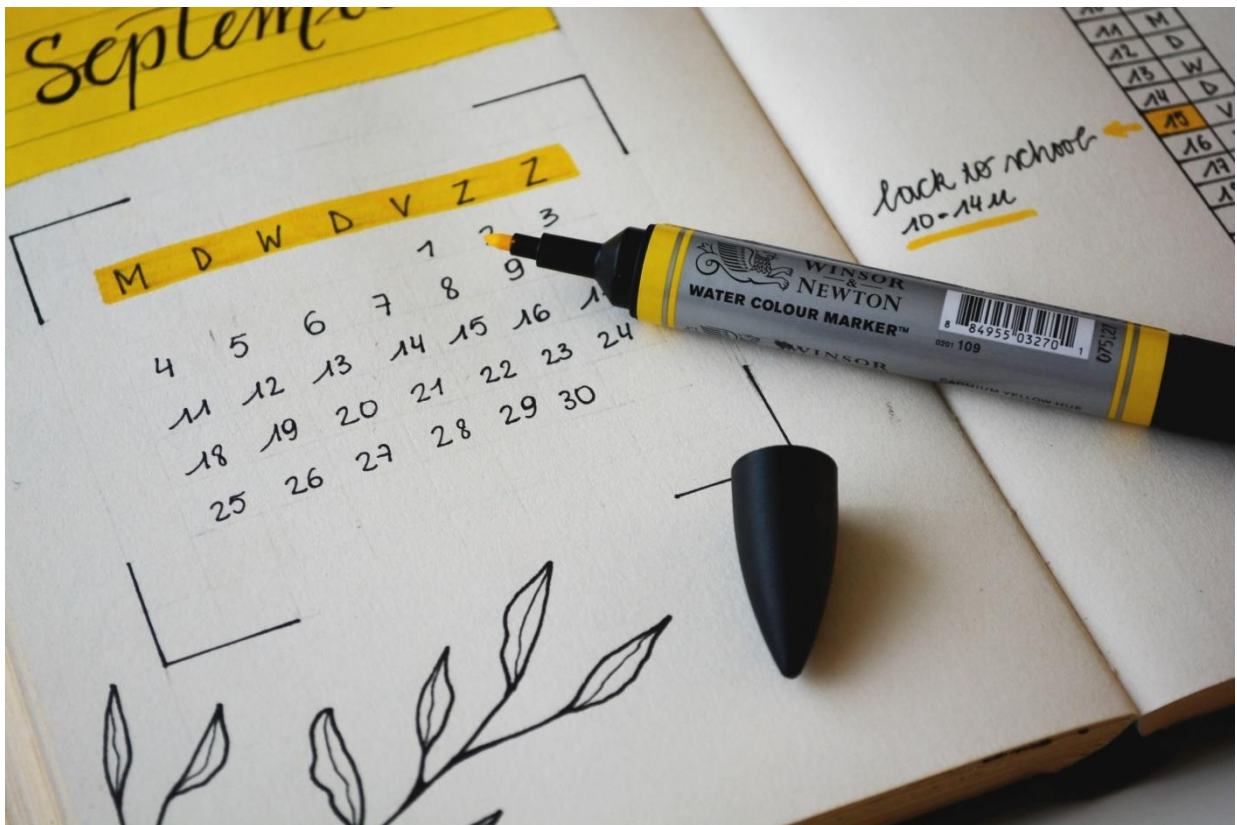 Septem
M D W D V Z Z
1 3
4 5 6 7 8 9
11 12 13 14 15 16
18 19 20 21 22 23 24
25 26 27 28 29 30
WINSOR
&
NEWTON
WATER COLOUR MARKER™
8 84955 03270 1
0201 109
WINSOR
CADMIUM YELLOW HUE
back to school
10-14u
11 M
12 D
13 W
14 D
15 V
16
17